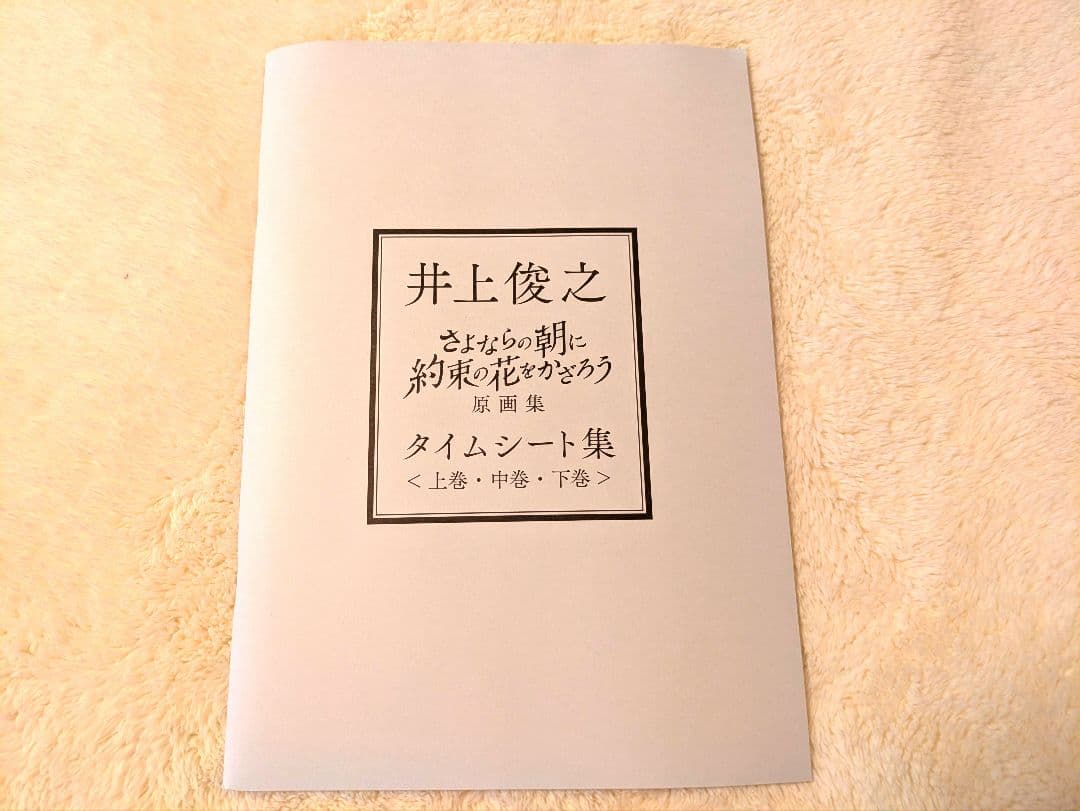 井上俊之
さよならの朝に
約束の花をかざろう
原画集
タイムシート集
＜上巻・中巻・下巻＞